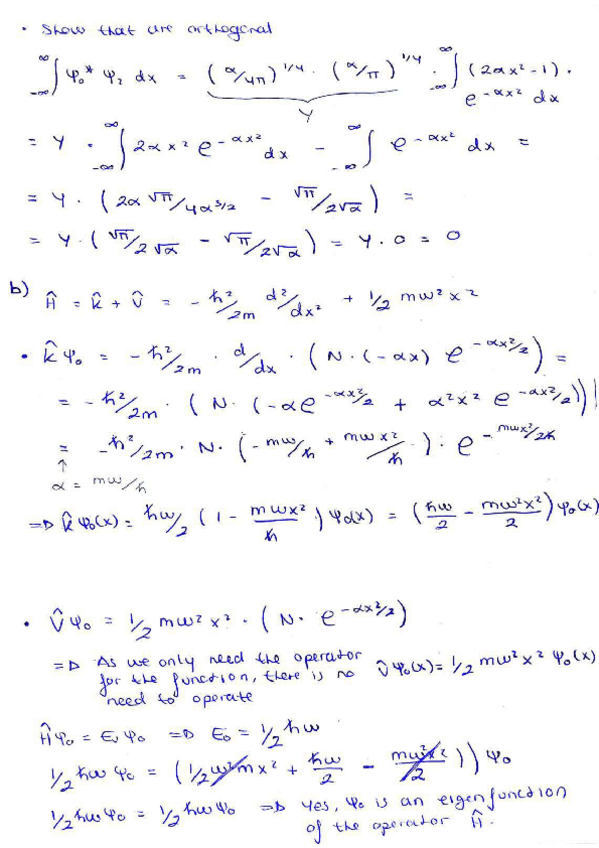 • Show that are orthogonal
∫_{-∞}^{∞} ψ₀* ψ₂ dx = (α/4π)^{1/4} · (α/π)^{1/4} · ∫_{-∞}^{∞} (2αx² - 1) · e^{-αx²} dx
Y
= Y · ∫_{-∞}^{∞} 2αx² e^{-αx²} dx - ∫_{-∞}^{∞} e^{-αx²} dx =
= Y · (2α √π/4α^{3/2} - √π/2√α) =
= Y · (√π/2√α - √π/2√α) = Y · 0 = 0
b) Ĥ = k̂ + V̂ = -ħ²/2m d²/dx² + 1/2 mω²x²
• k̂ψ₀ = -ħ²/2m · d/dx · (N · (-αx) e^{-αx²/2}) =
= -ħ²/2m · (N · (-αe^{-αx²/2} + α²x² e^{-αx²/2}))
= -ħ²/2m · N · (-mω/ħ + mωx²/ħ) · e^{-mωx²/2ħ}
↑
α = mω/ħ
⇒ k̂ψ₀(x) = ħω/2 (1 - mωx²/ħ) ψ₀(x) = (ħω/2 - mω²x²/2) ψ₀(x)
• V̂ψ₀ = 1/2 mω²x² · (N · e^{-αx²/2})
⇒ As we only need the operator
for the function, there is no V̂ψ₀(x) = 1/2 mω²x² ψ₀(x)
need to operate
Ĥψ₀ = E₀ψ₀ ⇒ E₀ = 1/2 ħω
1/2 ħω ψ₀ = (1/2 ω²mx² + ħω/2 - mω²x²/2)) ψ₀
1/2 ħωψ₀ = 1/2 ħωψ₀ ⇒ Yes, ψ₀ is an eigenfunction
of the operator Ĥ.